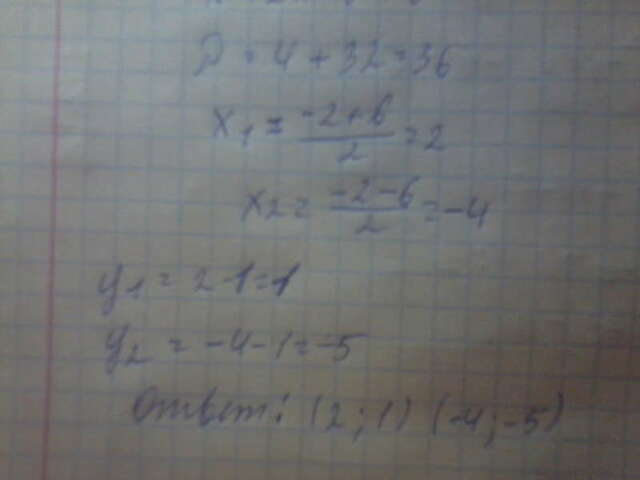 D = 4 + 32 = 36
x₁ = (-2+6)/2 = 2
x₂ = (-2-6)/2 = -4
y₁ = 2-1=1
y₂ = -4-1=-5
Ответ: (2;1) (-4;-5)